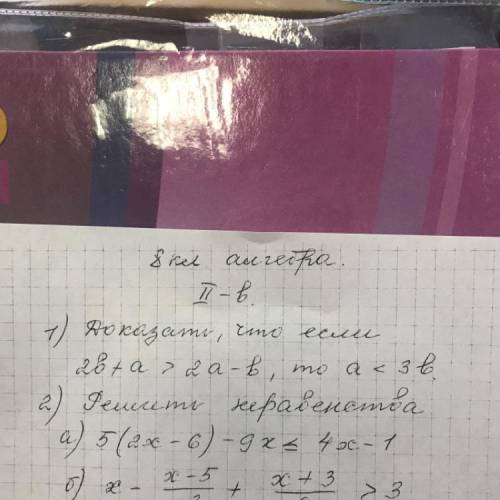 8 кл алгебра.
II - в.
1) Доказать, что если
2в + а > 2а - в, то а < 3в.
2) Решить неравенства
а) 5(2х - 6) - 9х ≤ 4х - 1
б) х - (х - 5)/3 + (х + 3)/ > 3